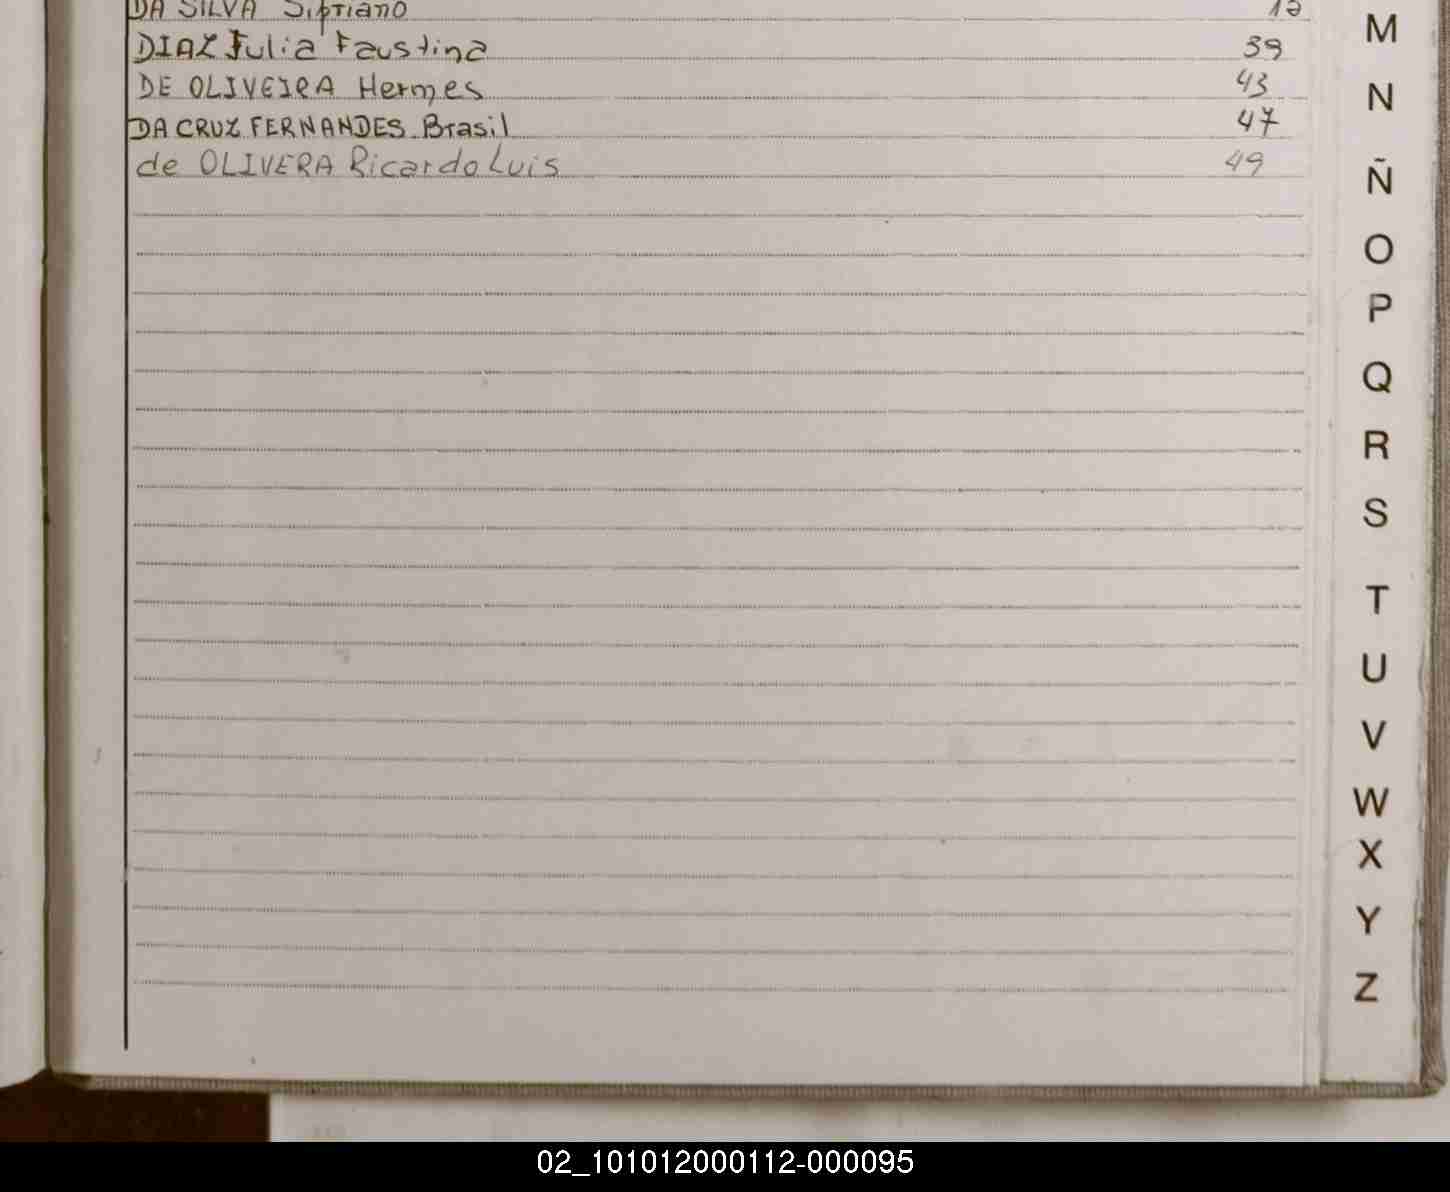 DA SILVA Sipriano
DIAZ Julia Faustina 39
DE OLIVEIRA Hermes 43
DA CRUZ FERNANDES Brasil 47
de OLIVERA Ricardo Luis 49
M
N
Ñ
O
P
Q
R
S
T
U
V
W
X
Y
Z
02_101012000112-000095